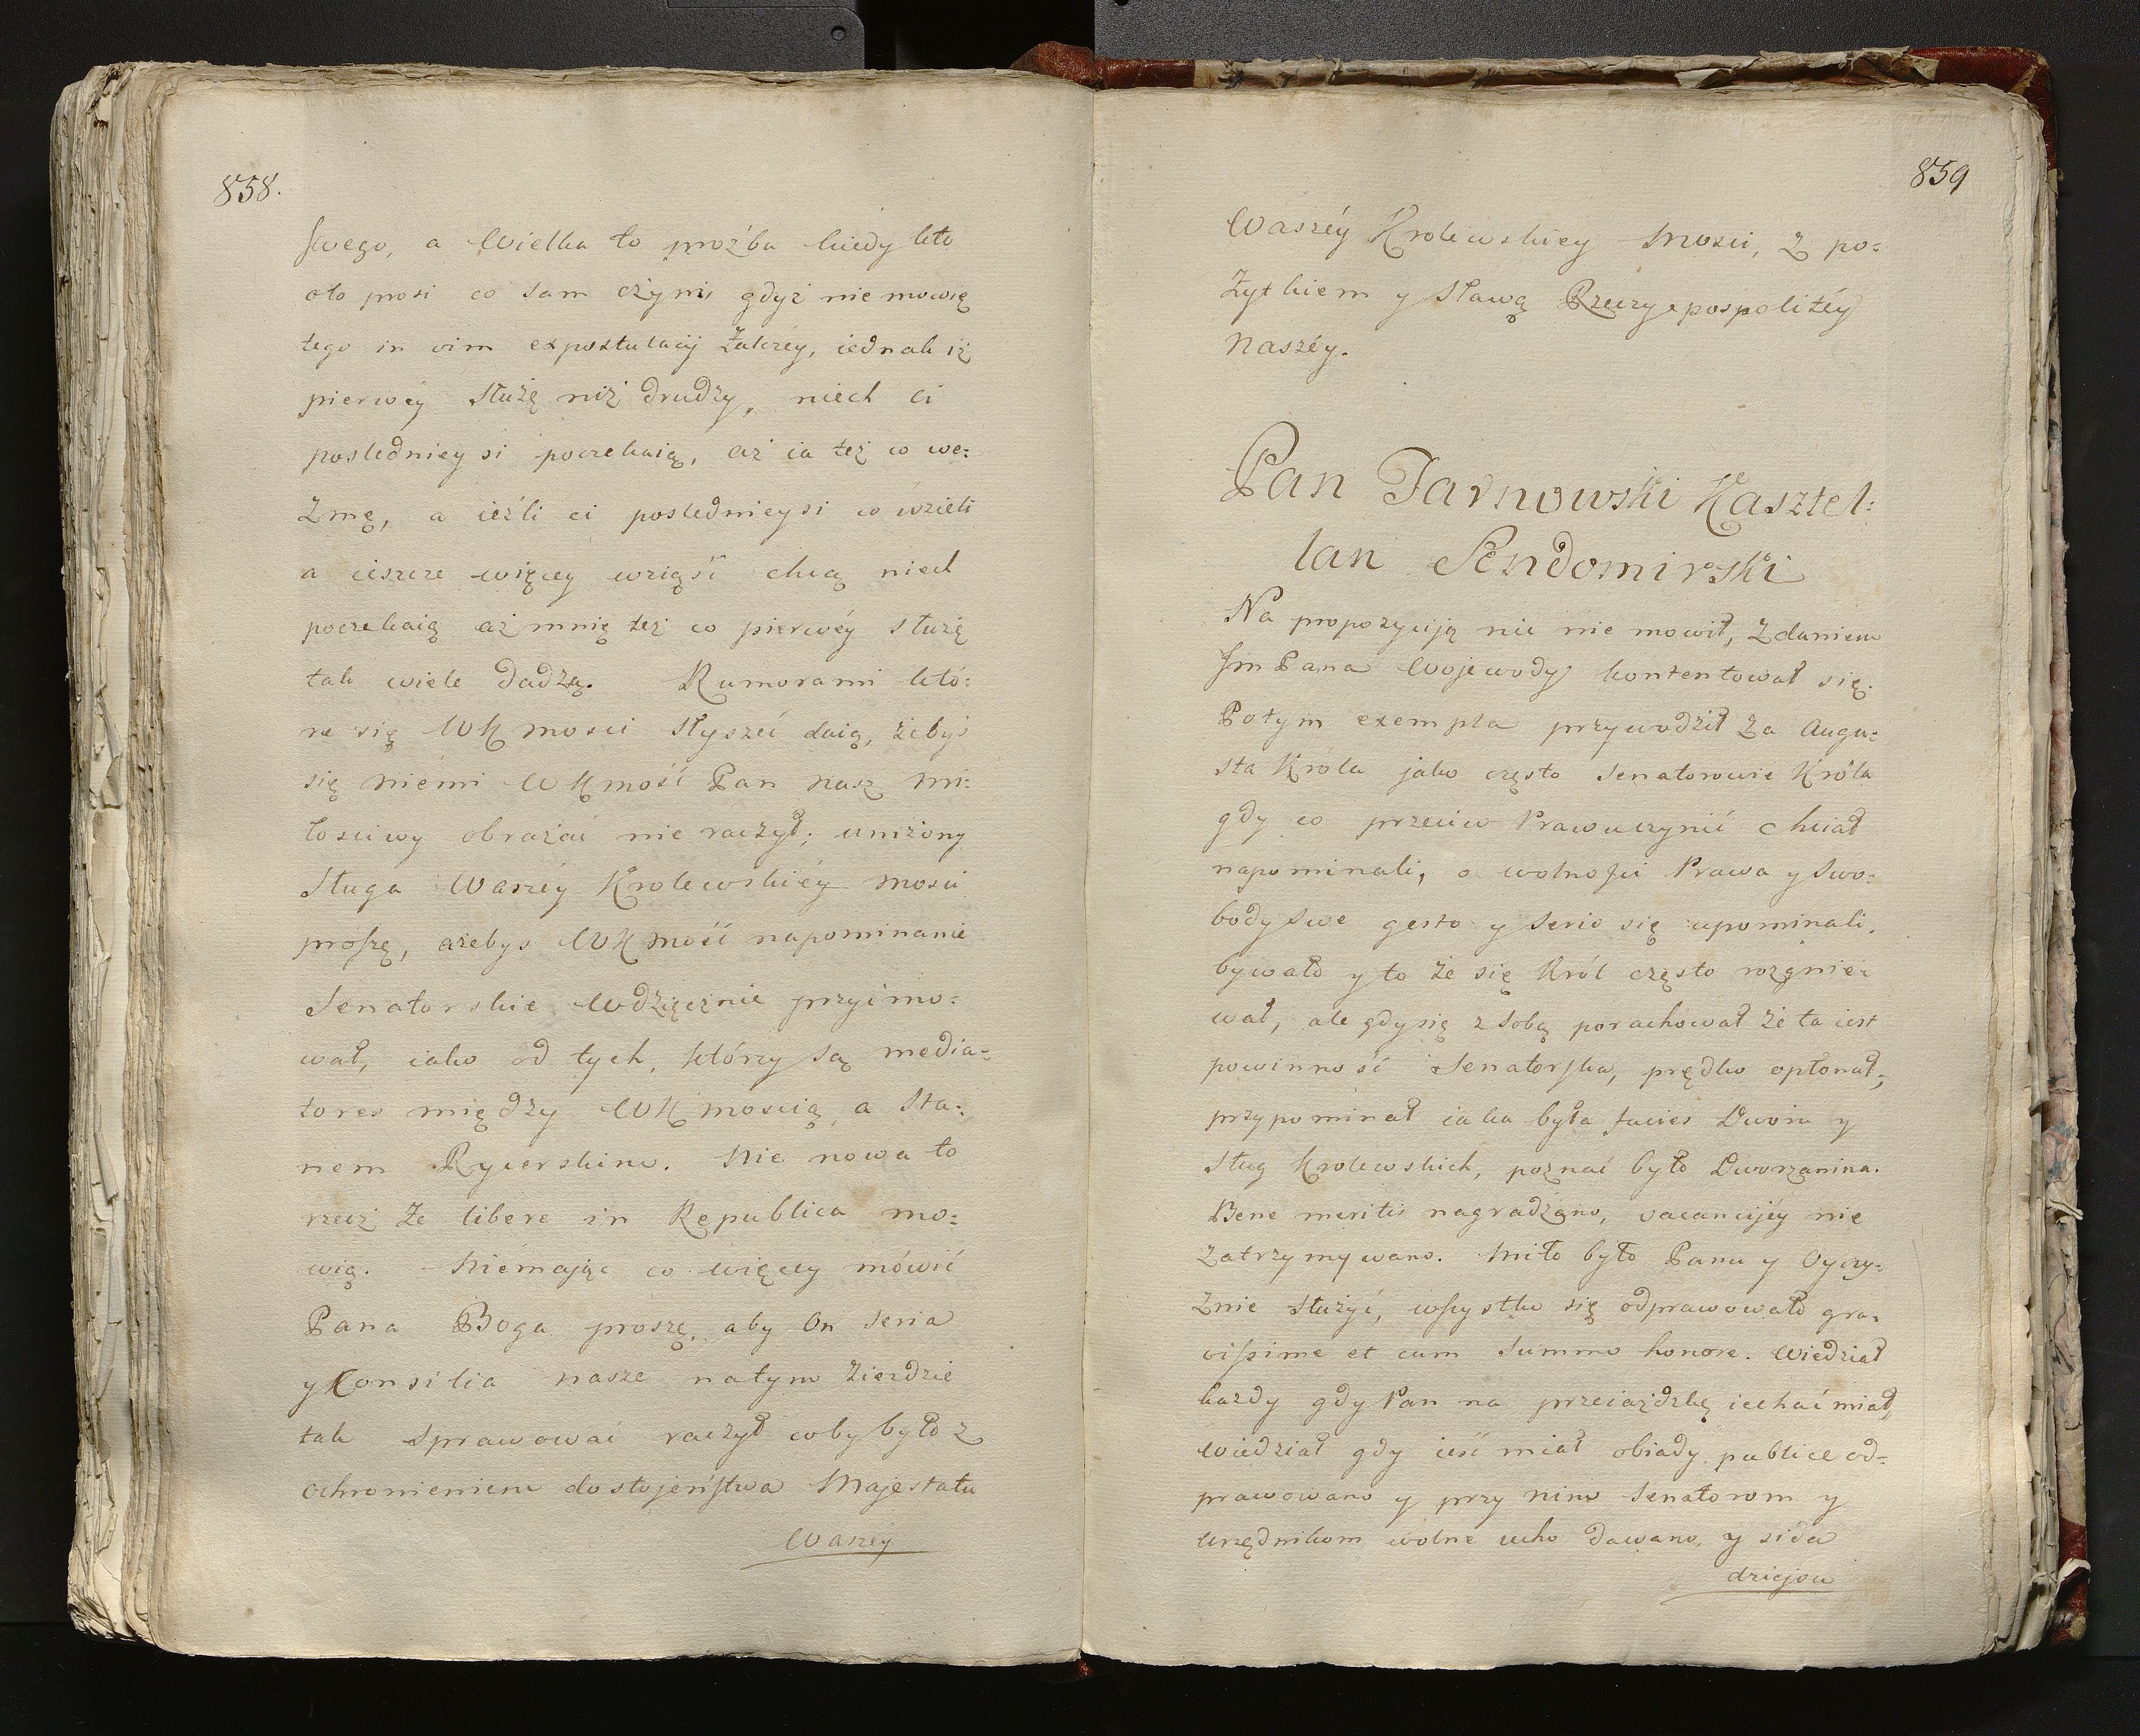 858.
swego, a Wielka to proźba kiedy kto
oto prosi co sam czyni, gdyż nie mowię
tego in vim expostulacij żakiéy, iednak iż
pierwéy Służę niż drudzy, niech ci
posledniey si poczekaią, aż ia też co we:
zmę, a ieźli ci posledniey si co wzieli
a ieszcze więcey wziąść chcą niech
poczekaią aż mnię też co pierwéy służę
tak wiele dadzą. Rumorami któ:
re się WK mosci Słyszéć daią, żebyś
się niémi WKmość Pan nasz mi:
łosciwy obrażać nie raczył; uniżony
Sługa Waszéy Krolewskiéy mosci
proszę, ażebys WK mość napominanie
Senatorskie Wdzięcznie przyimo:
wał, iako od tych, którzy są media:
tores między WK moscią a Sta:
nem Rycerskim. Nie nowa to
rzecz że libere in Republica mo:
wią. Niémając co więcey mówić
Pana Boga proszę, aby On Seria
y Consilia nasze natym Zieździe
tak sprawować raczył coby było z
ochronieniem dostojeństwa Majestatu
Waszéy
859
Waszéy Krolewskiey Mosci, z po:
żytkiem y Sławą Rzeczypospolitéy
Naszéy.
Pan Tarnowski Kasztel:
lan Sendomirski
Na propozyciją nic nie mowił, Zdaniem
Jm Pana Wojewody kontentował się.
Potym exempla przywodził za Augu:
sta Króla jako często Senatorowie Króla
gdy co przeciw Prawu czynić chciał
napominali, o wolnosci Prawa y Swo:
body Swe gesto y Serio się upominali.
bywało y to że się Król często rozgnie:
wał, ale gdy się z Sobą porachował że ta iest
powinność Senatorska, prędko opłonał;
przypominał iaka była facies Dworu y
Sług Krolewskich, poznać było Dworzanina.
Bene meritis nagradzano, vacancijéy nie
zatrzymywano. Miło było Panu y Oyczy:
znie służyć, wszystko się odprawowało gra:
vissime et cum Summo honore. Wiedział
kazdy gdy Pan na przeiażdzkę iechać miał,
wiedział gdy ieść miał obiady publice od:
prawowano y przy nim Senatorom y
Urzędnikom wolne ucho dawano, y siła
dziejow